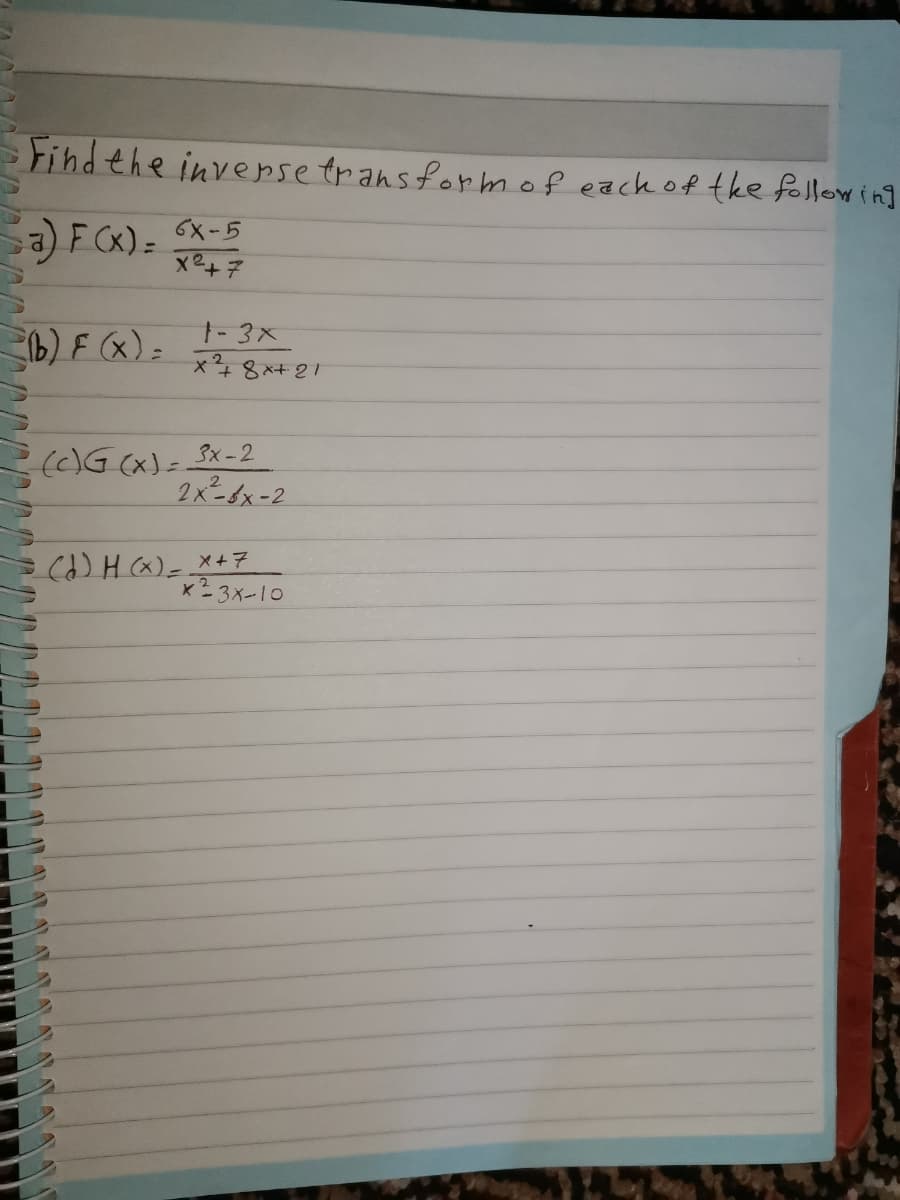 Find the inverse transform of each of the following
a) F(x) = 6x-5 / x²+7
(b) F(x) = 1-3x / x²+8x+21
(c) G(x) = 3x-2 / 2x²-6x-2
(d) H(x) = x+7 / x²-3x-10